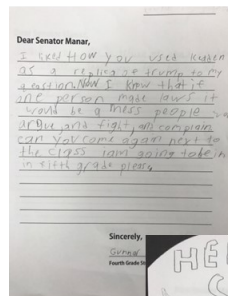 Dear Senator Manar,
I liked HOW you used
as a replica of trump to my
question. Now I know that if
one person made laws it
would be a mess people
argue, and fight, am complain
can you come again next to
the class iam going to be in
in fifth grade please,
Sincerely,
Gunnar
Fourth Grade St
HE